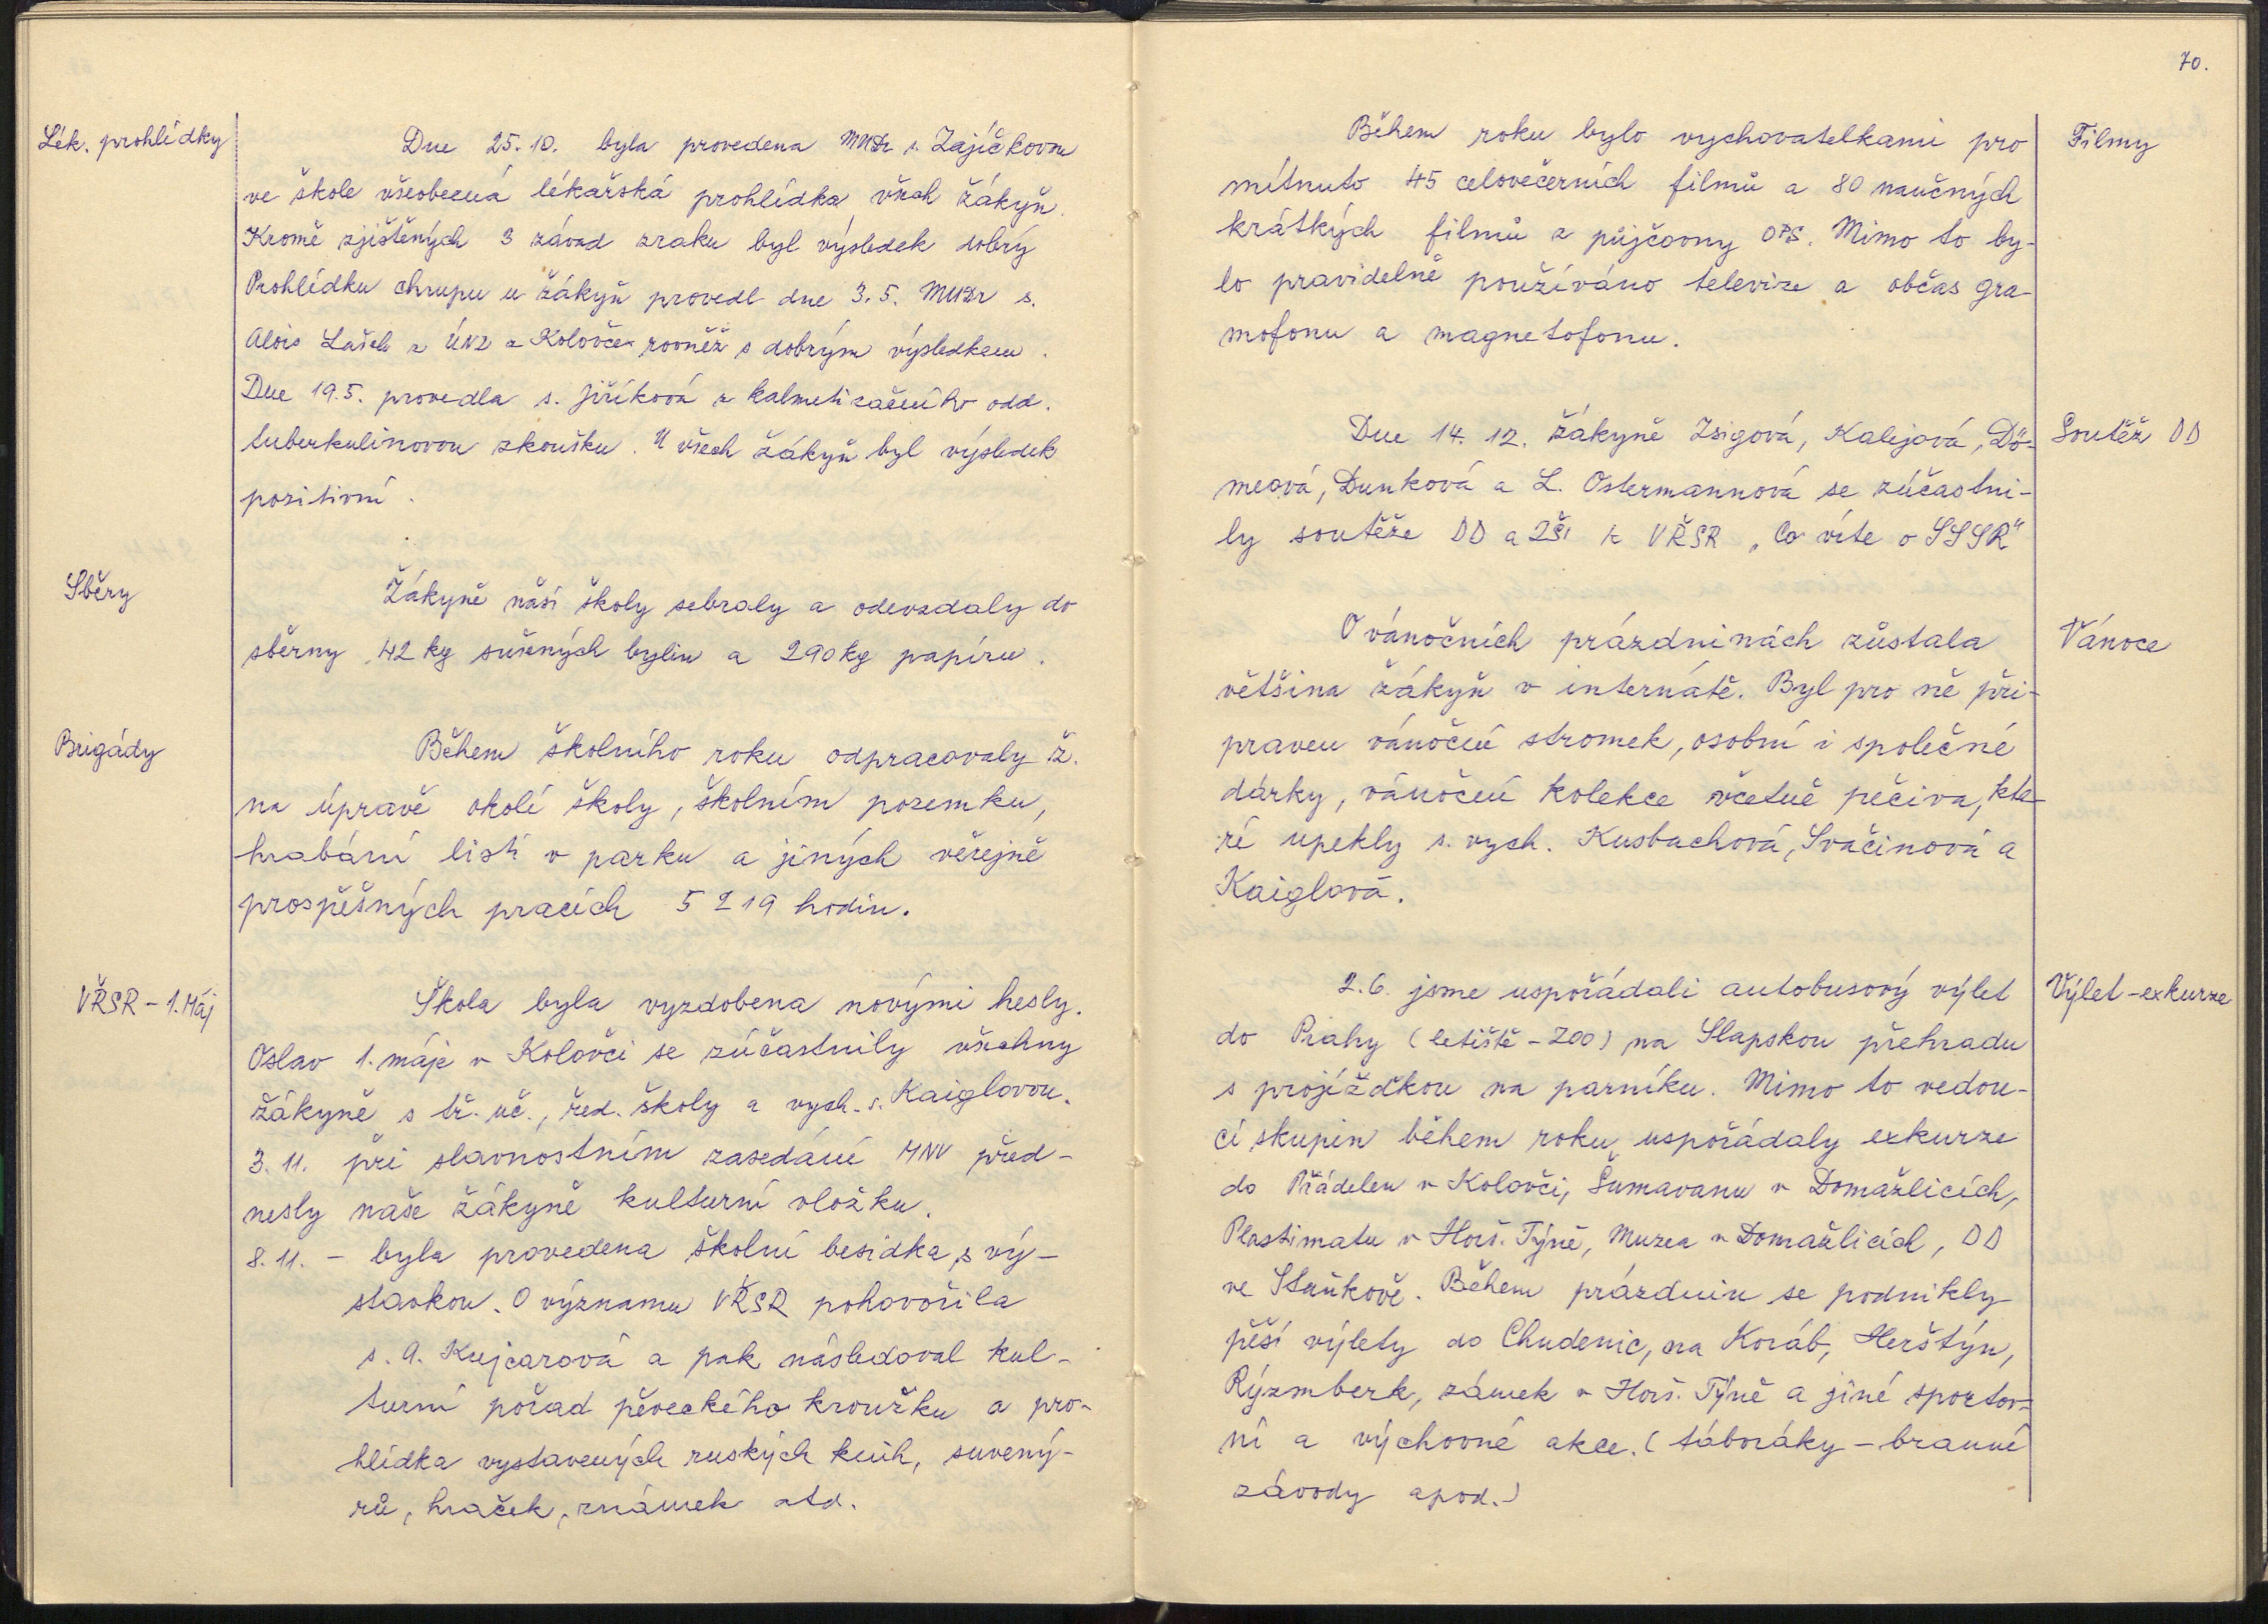 Lék. prohlídky
Dne 25. 10. byla provedena MUDr s. Zajíčkovou
ve škole všeobecná lékařská prohlídka všech žákyň.
Kromě zjištěných 3 závad zraku byl výsledek dobrý
Prohlídku chrupu u žákyň provedl dne 3. 5. MUDr s.
Alois Lašek z ÚNZ z Kolovče rovněž s dobrým výsledkem.
Dne 19. 5. provedla s. Jiříková z kalmetizačního odd.
tuberkulinovou zkoušku. U všech žákyň byl výsledek
pozitivní.
Sběry
Žákyně naší školy sebraly a odevzdaly do
sběrny 42 kg sušených bylin a 290 kg papíru.
Brigády
Během školního roku odpracovaly ž.
na úpravě okolí školy, školním pozemku,
hrabání listí v parku a jiných veřejně
prospěšných pracích 5 219 hodin.
VŘSR - 1. Máj
Škola byla vyzdobena novými hesly.
Oslav 1. máje v Kolovči se zúčastnily všechny
žákyně s tř. uč., řed. školy a vych. s. Kaiglovou.
3. 11. při slavnostním zasedání MNV před-
nesly naše žákyně kulturní vložku.
8. 11. - byla provedena školní besídka, s vý-
stavkou. O významu VŘSR pohovořila
s. A. Kujcarová a pak následoval kul-
turní pořad pěveckého kroužku a pro-
hlídka vystavených ruských knih, suvený-
rů, hraček, známek atd.
70.
Filmy
Během roku bylo vychovatelkami pro
mítnuto 45 celovečerních filmů a 80 naučných
krátkých filmů z půjčovny OPS. Mimo to by-
lo pravidelně používáno televize a občas gra-
mofonu a magnetofonu.
Soutěž DD
Dne 14. 12. žákyně Zsigová, Kalejová, Dö-
meová, Dunková a L. Ostermannová se zúčastni-
ly soutěže DD a ZŠI k VŘSR „Co víte o SSSR"
Vánoce
O vánočních prázdninách zůstala
většina žákyň v internátě. Byl pro ně při-
praven vánoční stromek, osobní i společné
dárky, vánoční kolekce včetně pečiva, kte-
ré upekly s. vych. Kusbachová, Svačinová a
Kaiglová.
Výlet - exkurze
2. 6. jsme uspořádali autobusový výlet
do Prahy (letiště - ZOO) na Slapskou přehradu
s projížďkou na parníku. Mimo to vedou-
cí skupin během roku uspořádaly exkurze
do Přádelen v Kolovči, Šumavanu v Domažlicích,
Plastimatu v Horš. Týně, Muzea v Domažlicích, DD
ve Staňkově. Během prázdnin se podnikly
pěší výlety do Chudenic, na Koráb, Herštýn,
Rýzmberk, zámek v Horš. Týně a jiné sportov-
ní a výchovné akce. (táboráky - branné
závody apod.)